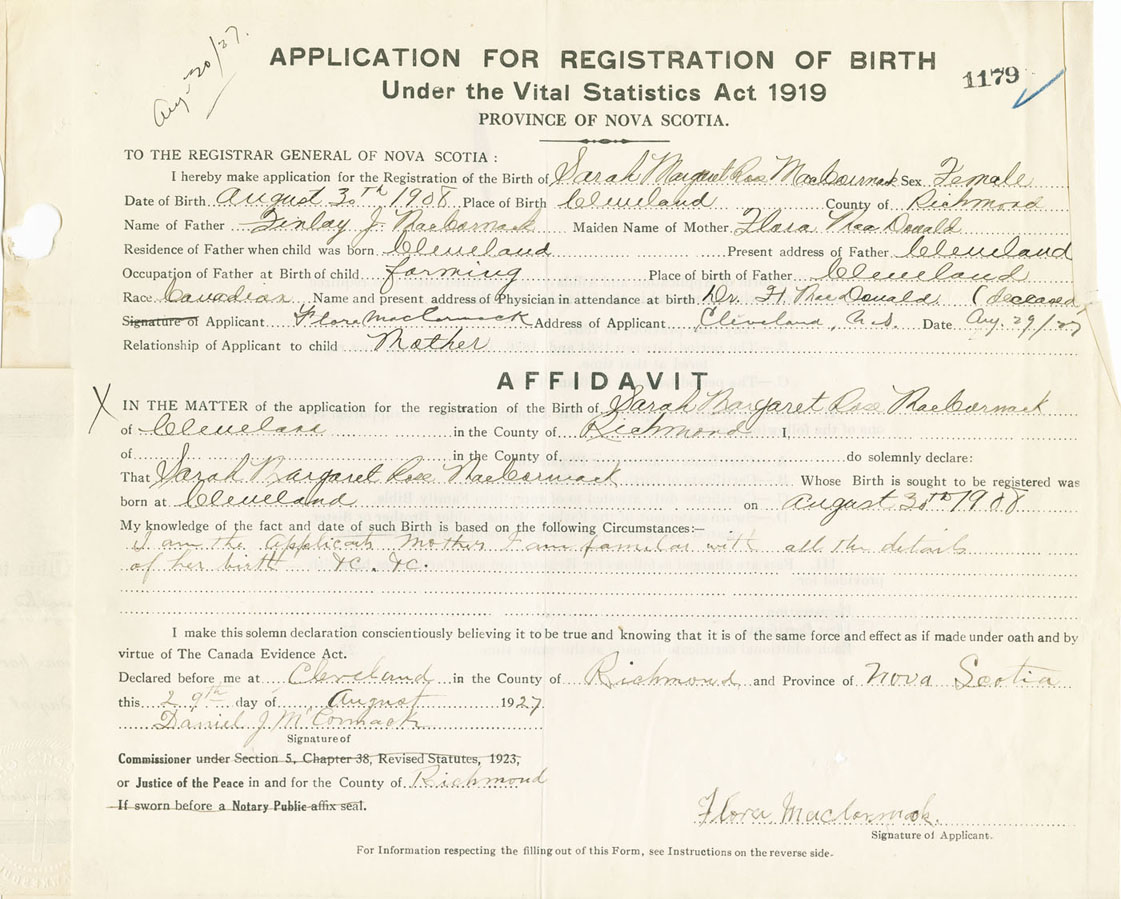 Aug 30/27.
APPLICATION FOR REGISTRATION OF BIRTH
1179
Under the Vital Statistics Act 1919
PROVINCE OF NOVA SCOTIA.
TO THE REGISTRAR GENERAL OF NOVA SCOTIA :
I hereby make application for the Registration of the Birth of Sarah Margaret Rose MacCormack Sex Female
Date of Birth August 30th 1908 Place of Birth Cleveland County of Richmond
Name of Father Finlay J. MacCormack Maiden Name of Mother Flora MacDonald
Residence of Father when child was born Cleveland Present address of Father Cleveland
Occupation of Father at Birth of child farming Place of birth of Father Cleveland
Race Canadian Name and present address of Physician in attendance at birth Dr. H. MacDonald (deceased
Signature of Applicant Flora MacCormack Address of Applicant Cleveland, N.S. Date Aug. 29/27
Relationship of Applicant to child Mother
AFFIDAVIT
X IN THE MATTER of the application for the registration of the Birth of Sarah Margaret Rose MacCormack
of Cleveland in the County of Richmond I,
of in the County of do solemnly declare:
That Sarah Margaret Rose MacCormack Whose Birth is sought to be registered was
born at Cleveland on August 30th 1908
My knowledge of the fact and date of such Birth is based on the following Circumstances:—
I am the Applicants Mother I am familar with all the details
of her birth &c. &c.
I make this solemn declaration conscientiously believing it to be true and knowing that it is of the same force and effect as if made under oath and by
virtue of The Canada Evidence Act.
Declared before me at Cleveland in the County of Richmond and Province of Nova Scotia
this 29th day of August 1927
Daniel J McCormack
Signature of
Commissioner under Section 5, Chapter 38, Revised Statutes, 1923,
or Justice of the Peace in and for the County of Richmond
If sworn before a Notary Public affix seal.
Flora MacCormack.
Signature of Applicant.
For Information respecting the filling out of this Form, see Instructions on the reverse side.